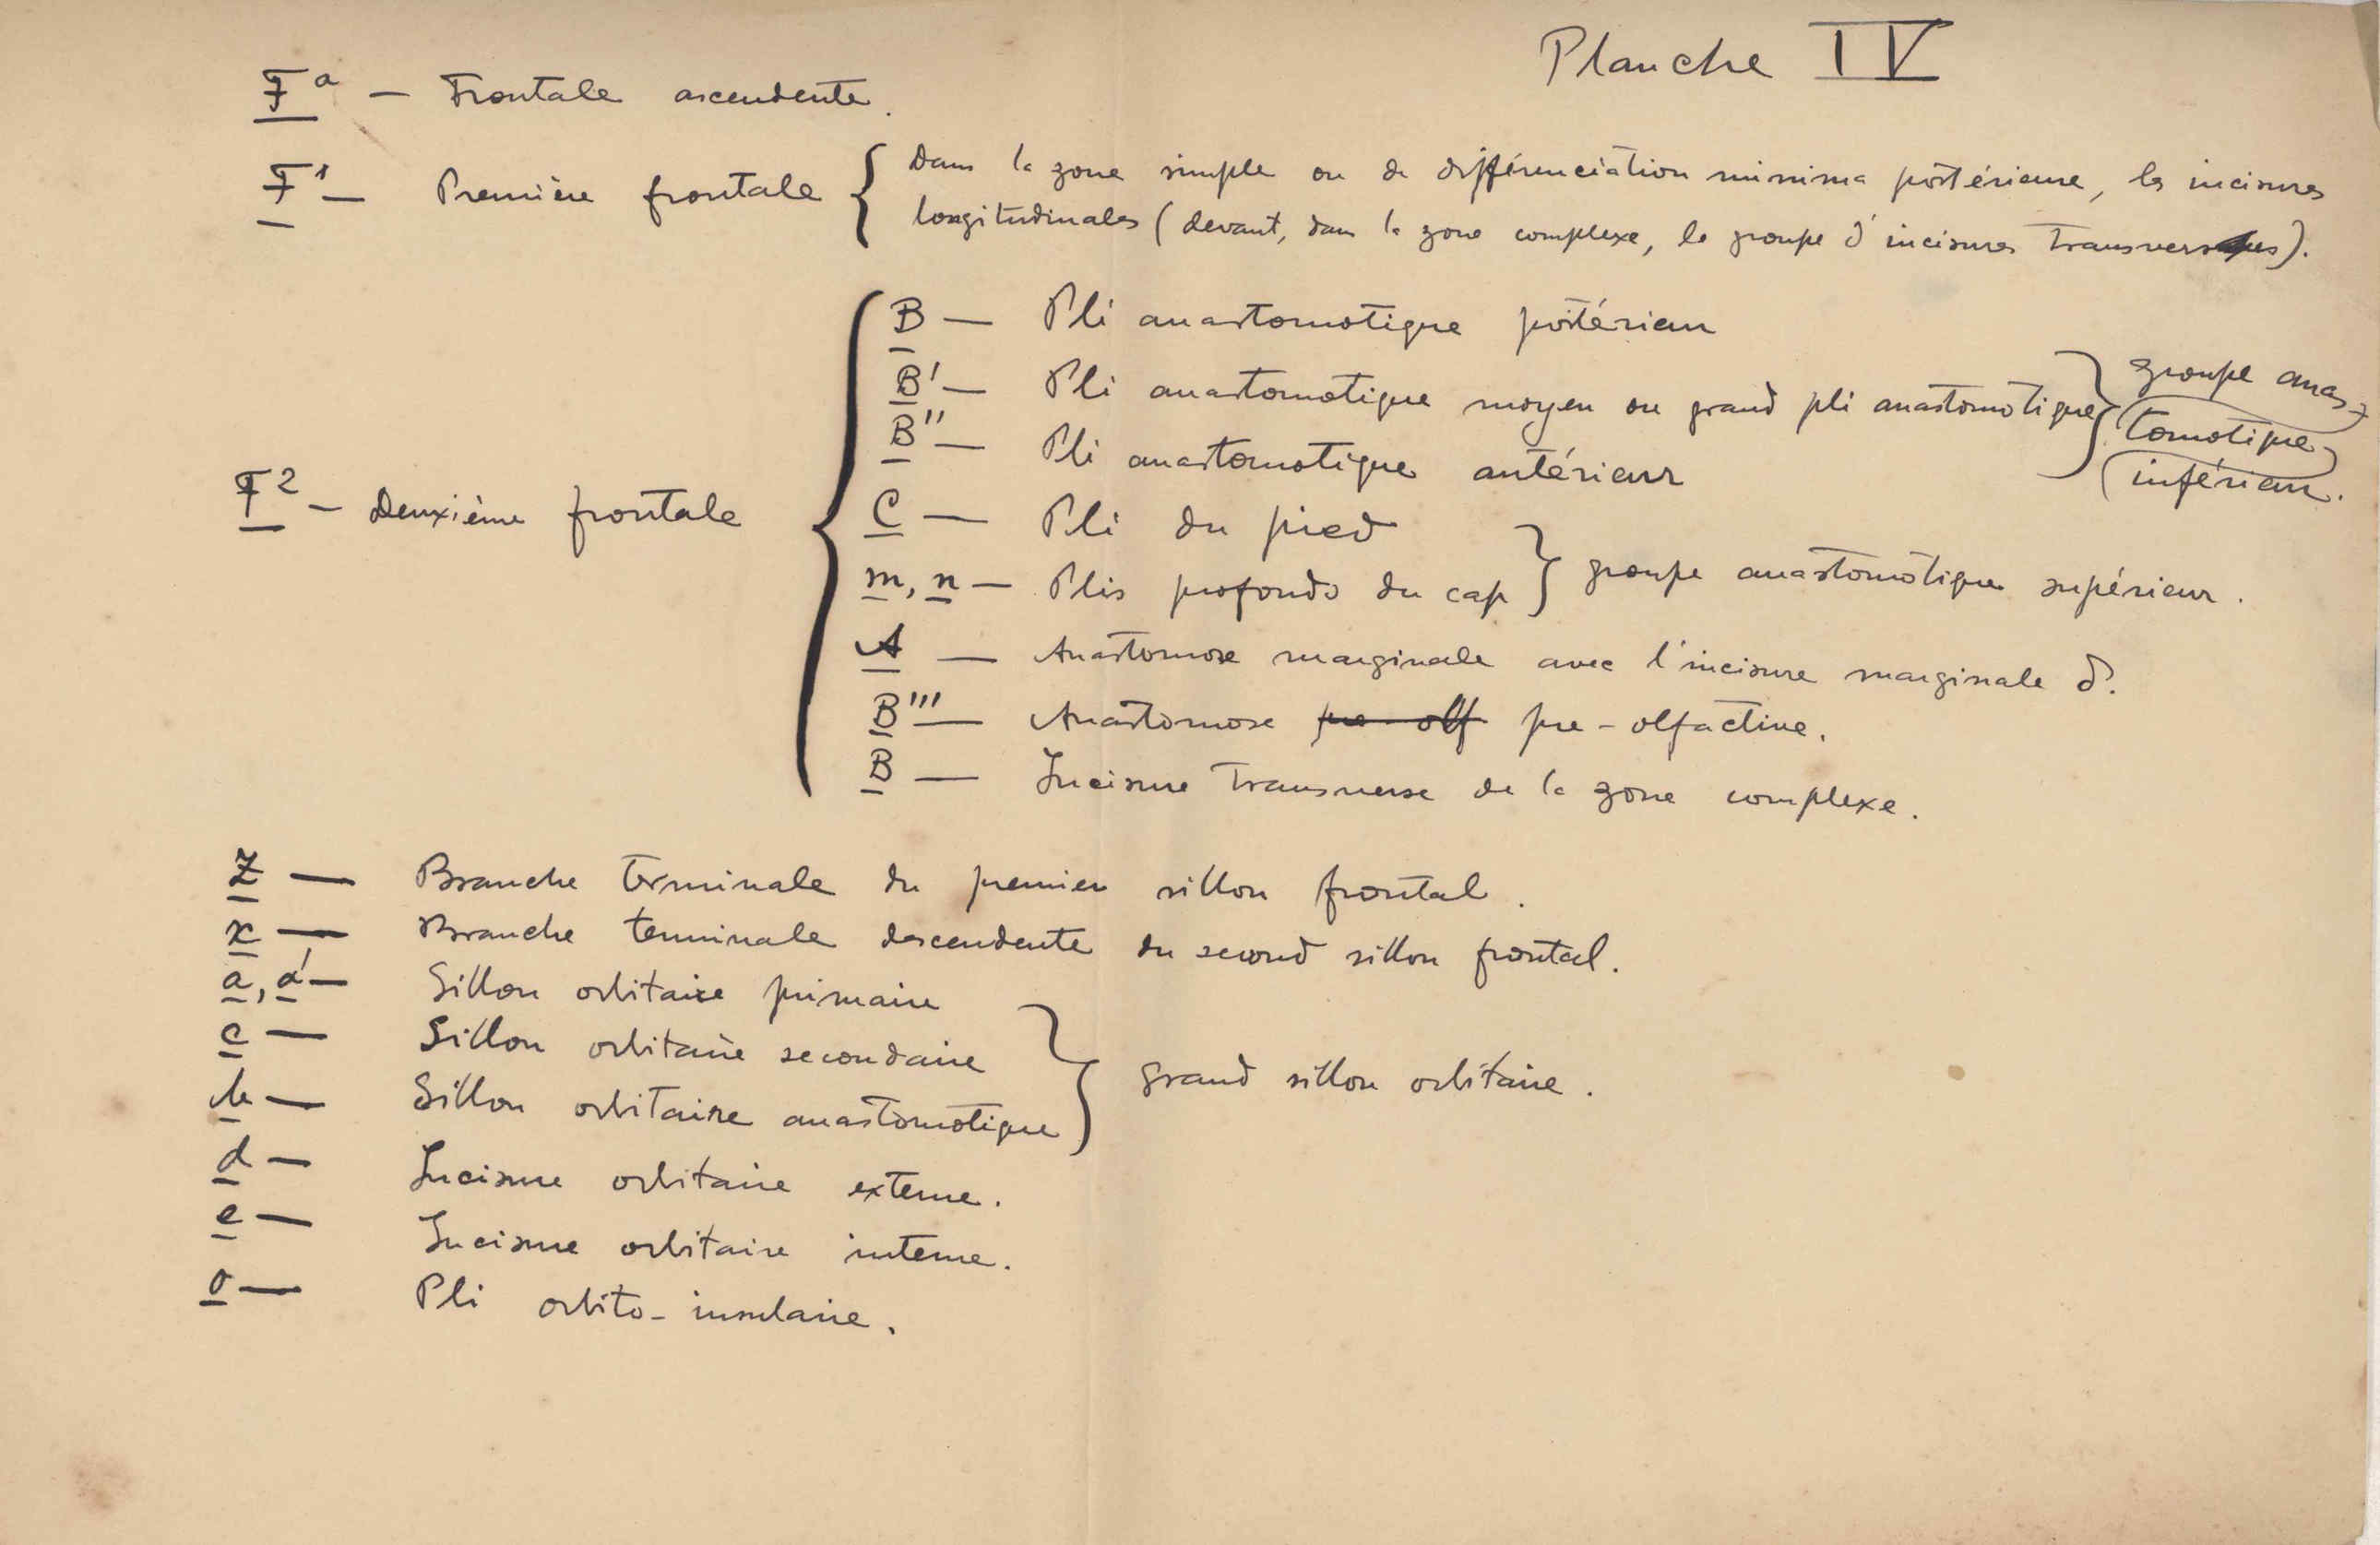 Planche IV
F^a — Frontale ascendente.
F^1 — Première frontale { Dans la zone simple ou de différenciation minima postérieure, les incisures
longitudinales (devant, dans la zone complexe, le groupe d'incisures transverses).
B — Pli anastomotique postérieur
B' — Pli anastomotique moyen ou grand pli anastomotique } groupe anas-
tomotique
inférieur.
B'' — Pli anastomotique antérieur
F^2 — Deuxième frontale {
C — Pli du pied
m, n — Plis profonds du cap } groupe anastomotique supérieur.
A — Anastomose marginale avec l'incisure marginale δ.
B''' — Anastomose pre-olf pre-olfactive.
B — Incisure transverse de la zone complexe.
Z — Branche terminale du premier sillon frontal.
x — Branche terminale descendente du second sillon frontal.
a, a' — Sillon orbitaire primaire
c — Sillon orbitaire secondaire } grand sillon orbitaire.
b — Sillon orbitaire anastomotique
d — Incisure orbitaire externe.
e — Incisure orbitaire interne.
o — Pli orbito-insulaire.